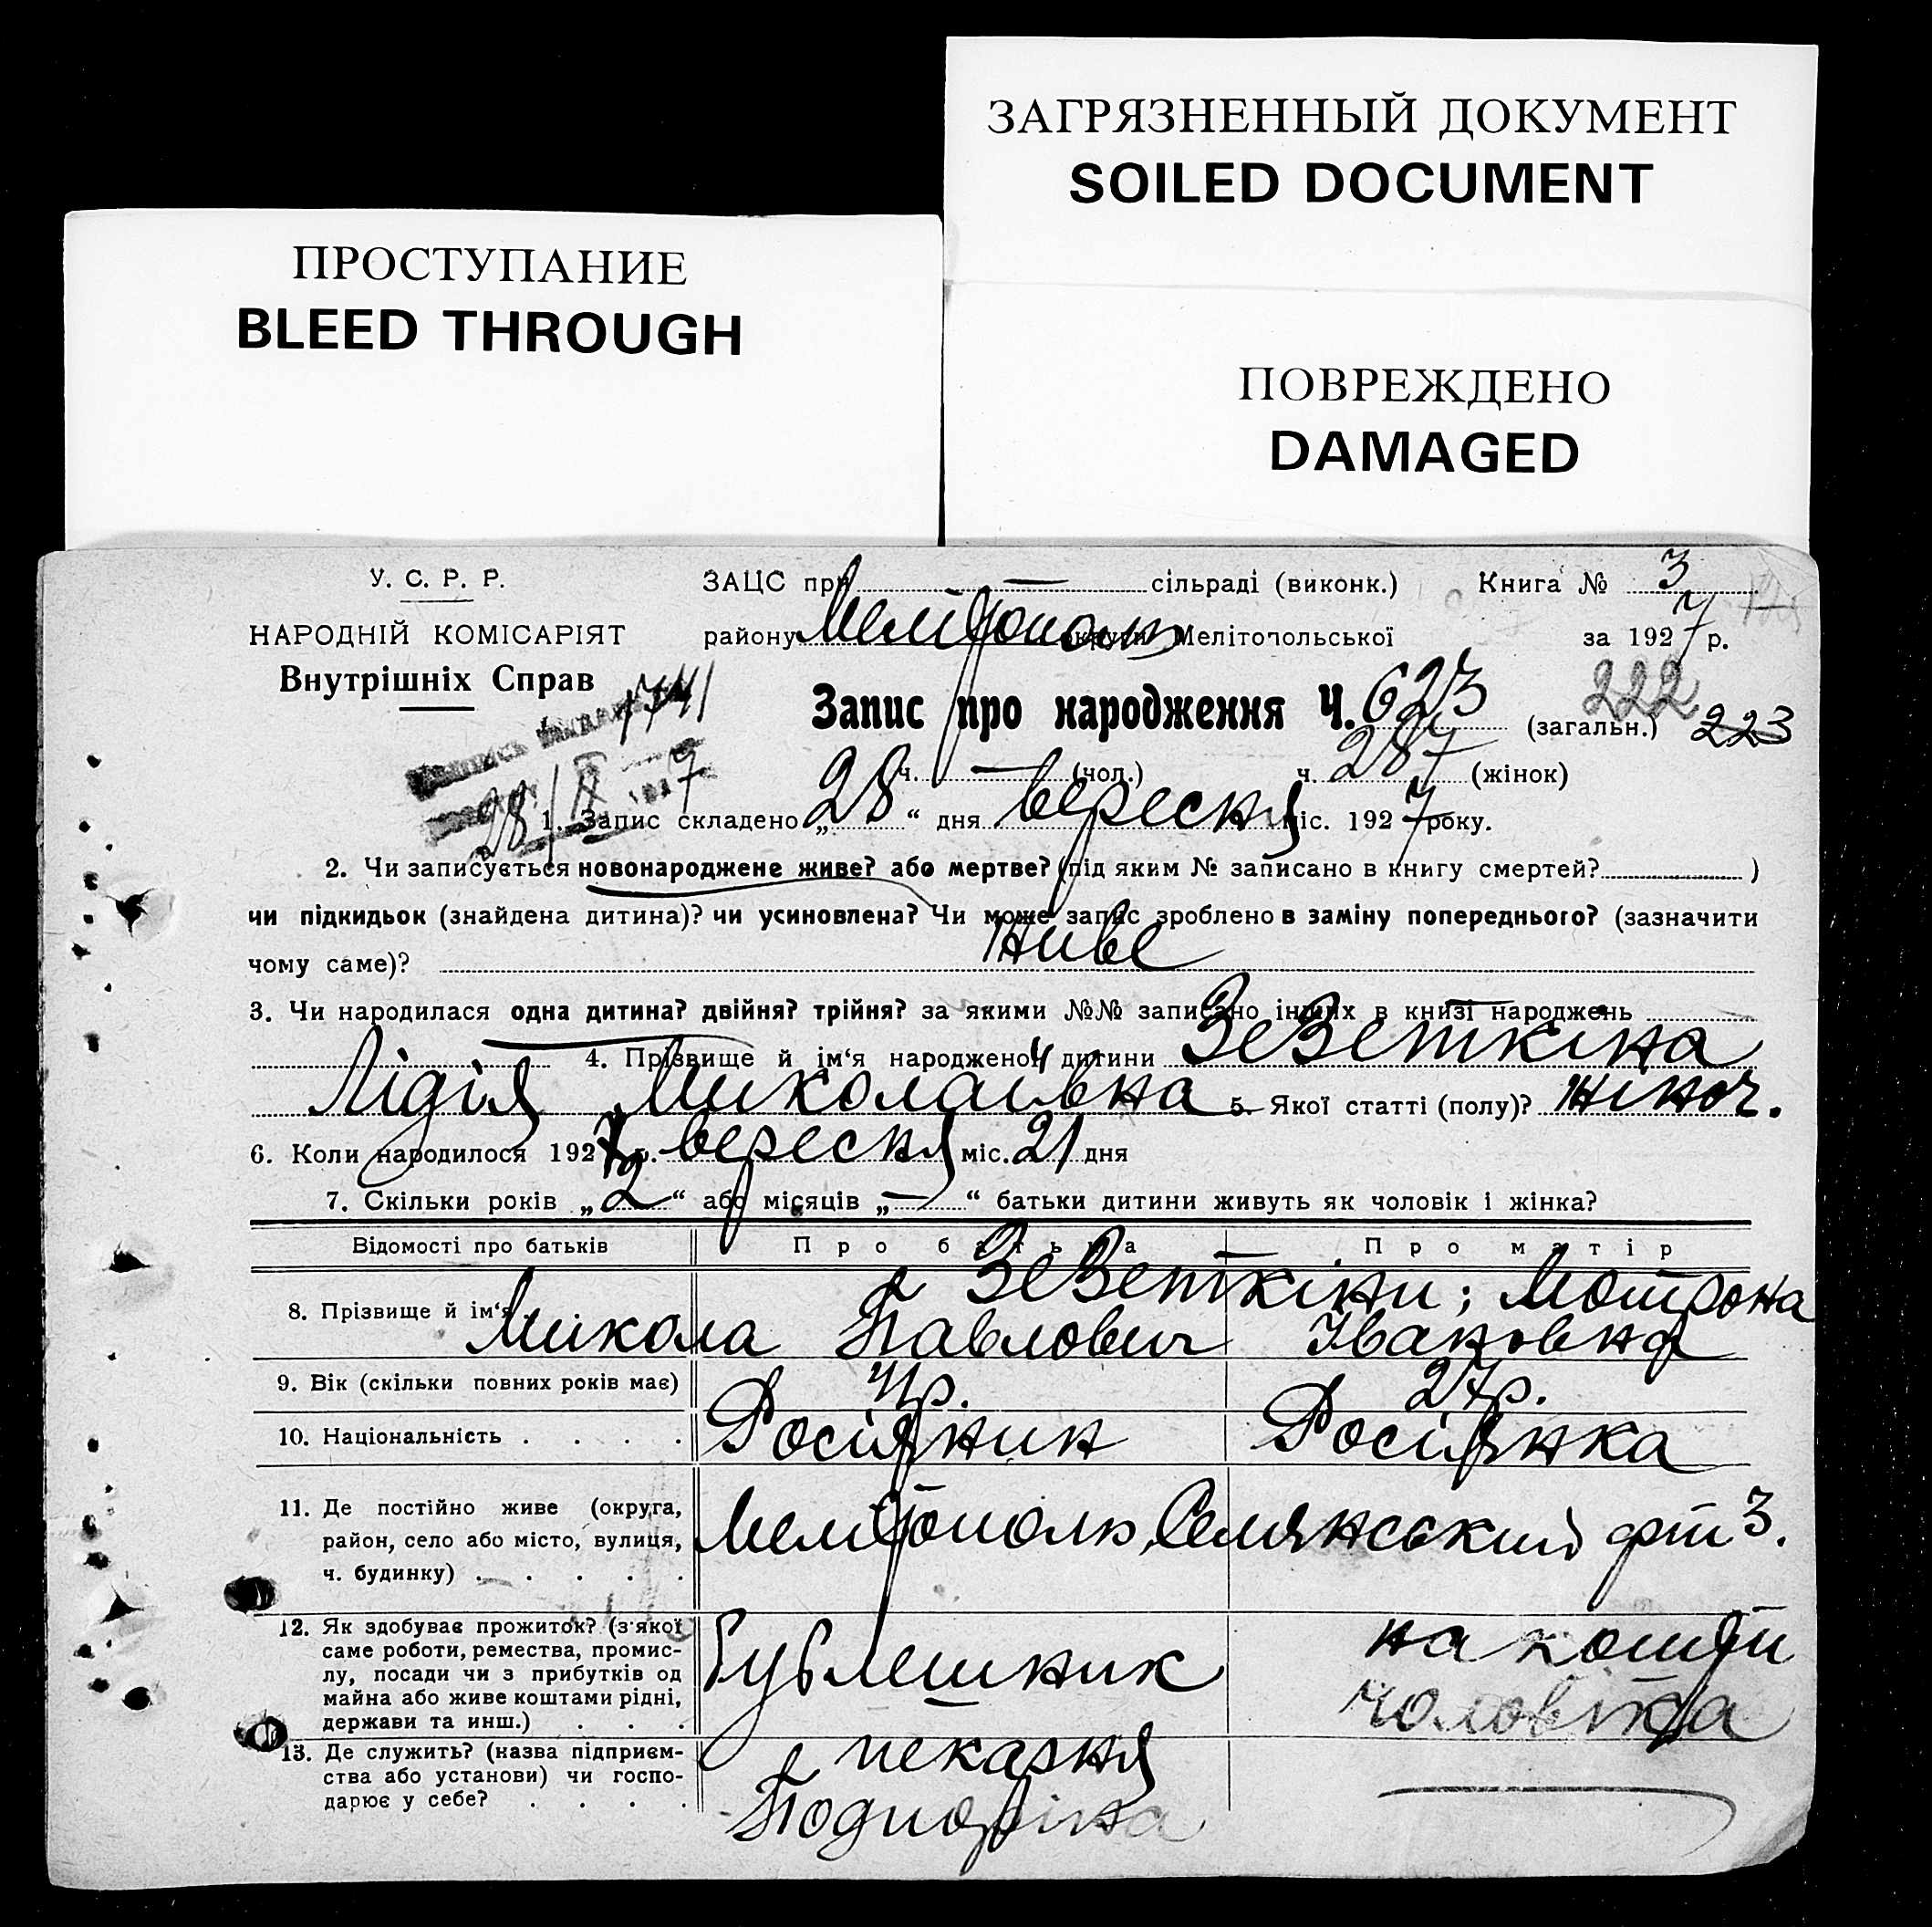 ЗАГРЯЗНЕННЫЙ ДОКУМЕНТ
SOILED DOCUMENT
ПРОСТУПАНИЕ
BLEED THROUGH
ПОВРЕЖДЕНО
DAMAGED
У. С. Р. Р.
НАРОДНІЙ КОМІСАРІЯТ
Внутрішніх Справ
ЗАЦС при — сільраді (виконк.) Книга № 3
району Мелітополь округи Мелітопольської за 1927 р.
1741
Запис про народження Ч. 623 (загальн.) 222 223
ч. — (чол.) ч. 287 (жінок)
28/IX 7
1. Запис складено „28“ дня вересня міс. 1927 року.
2. Чи записується новонароджене живе? або мертве? (під яким № записано в книгу смертей? )
чи підкидьок (знайдена дитина)? чи усиновлена? Чи може запис зроблено в заміну попереднього? (зазначити
чому саме)? живе
3. Чи народилася одна дитина? двійня? трійня? за якими №№ записано інших в книзі народжень —
4. Прізвище й ім‘я народженої дитини Зезеткіна
Лідія Миколаівна 5. Якої статті (полу)? жіноч.
6. Коли народилося 1927 р. вересня міс. 21 дня
7. Скільки років „2“ або місяців „—“ батьки дитини живуть як чоловік і жінка?
Відомості про батьків Про батька Про матір
8. Прізвище й ім‘я Зезеткіни; Мотрона
Микола Павлович Івановна
9. Вік (скільки повних років має) 41р. 27р.
10. Національність . . . . Росіянин Росіянка
11. Де постійно живе (округа,
район, село або місто, вулиця,
ч. будинку) . . . . .
Мелітополь, Семянський 3.
12. Як здобуває прожиток? (з якої
саме роботи, ремества, промис-
лу, посади чи з прибутків од
майна або живе коштами рідні,
держави та инш.) . . .
Бублешник
на кошти
чоловіка
13. Де служить? (назва підприєм-
ства або установи) чи госпо-
дарює у себе? . . . .
пекарня
—